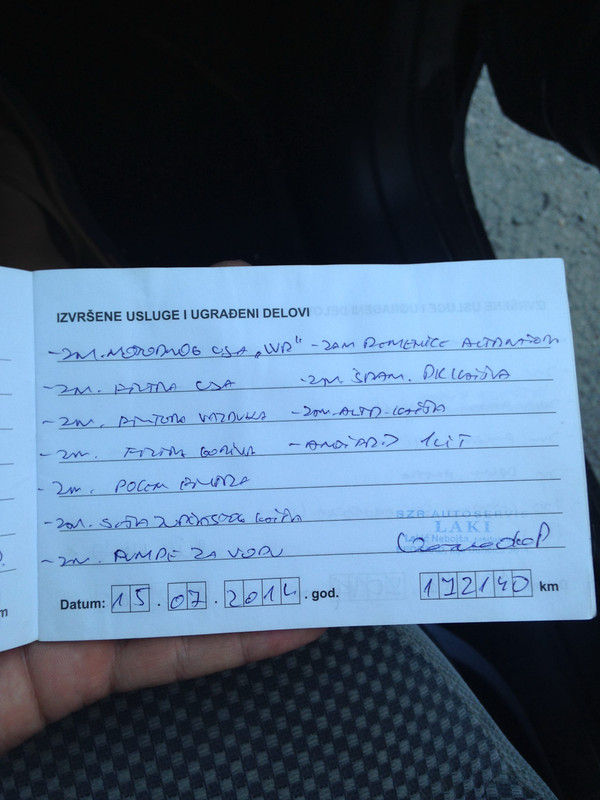 IZVRŠENE USLUGE I UGRAĐENI DELOVI
- ZAM. MOTORNOG ULJA - ZAM REMENICE ALTERNATORA
- ZM. FILTRA ULJA - ZM. ŠPAN. PK KAIŠA
- ZM. FILTERA VAZDUHA - ZAM. ALT. KAIŠA
- ZM. FILTRA GORIVA - ANTIFRIZ 1 LIT
- ZM. POLEN FILTRA
- ZAM. SETA ZUPČASTOG KAIŠA
- ZM. PUMPE ZA VODU
SZR AUTOSERVIS
LAKI
Nebojša
Datum: 15.07.2014. god. 172140 km
km